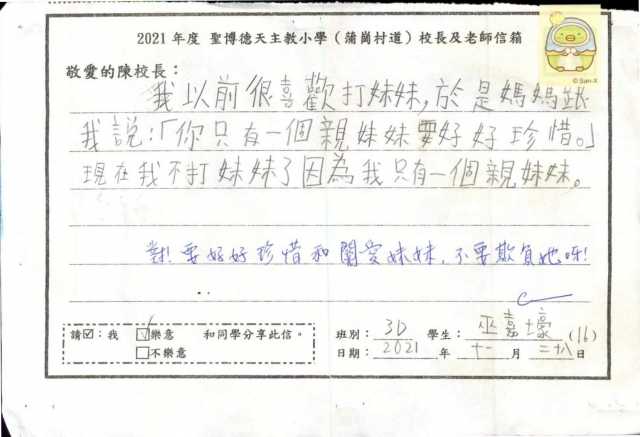 2021 年度 聖博德天主教小學（蒲崗村道）校長及老師信箱
© San-X
敬愛的陳校長：
我以前很喜歡打妹妹，於是媽媽跟
我說：「你只有一個親妹妹要好好珍惜。」
現在我不打妹妹了因為我只有一個親妹妹。
對！要好好珍惜和關愛妹妹，不要欺負她呀！
請☑：我 ☑樂意 和同學分享此信。
□不樂意
班別：3D 學生：巫嘉壕 (16)
日期：2021 年 十一 月 二十八 日